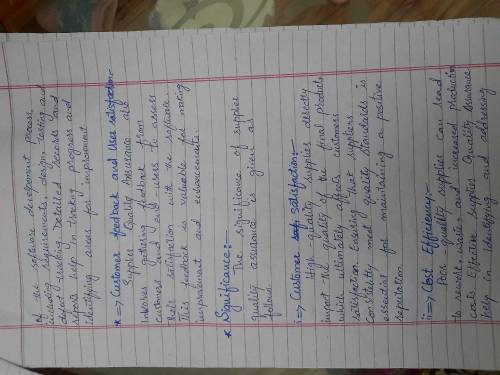 of the software development process,
including requirements, design, testing and
defect tracking. Detailed records and
reports help in tracking progress and
identifying areas for improvement.
* => Customer feedback and User satisfaction:-
Supplier Quality Assurance also
involves gathering feedback from
customers and end users to assess
their satisfaction with the software.
This feedback is valuable for making
improvement and enhancements.
* Significance:-
The significance of supplier
quality assurance is given as
follow.
i => Customer Satisfaction:-
High quality supplies directly
impact the quality of the final products
which ultimately affects customers
satisfaction. Ensuring that suppliers
consistently meet quality standards is
essential for maintaining a positive
reputation.
ii => Cost Efficiency:-
Poor-quality supplies can lead
to rework, waste and increased production
costs. Effective Supplier Quality Assurance
help in identifying and addressing